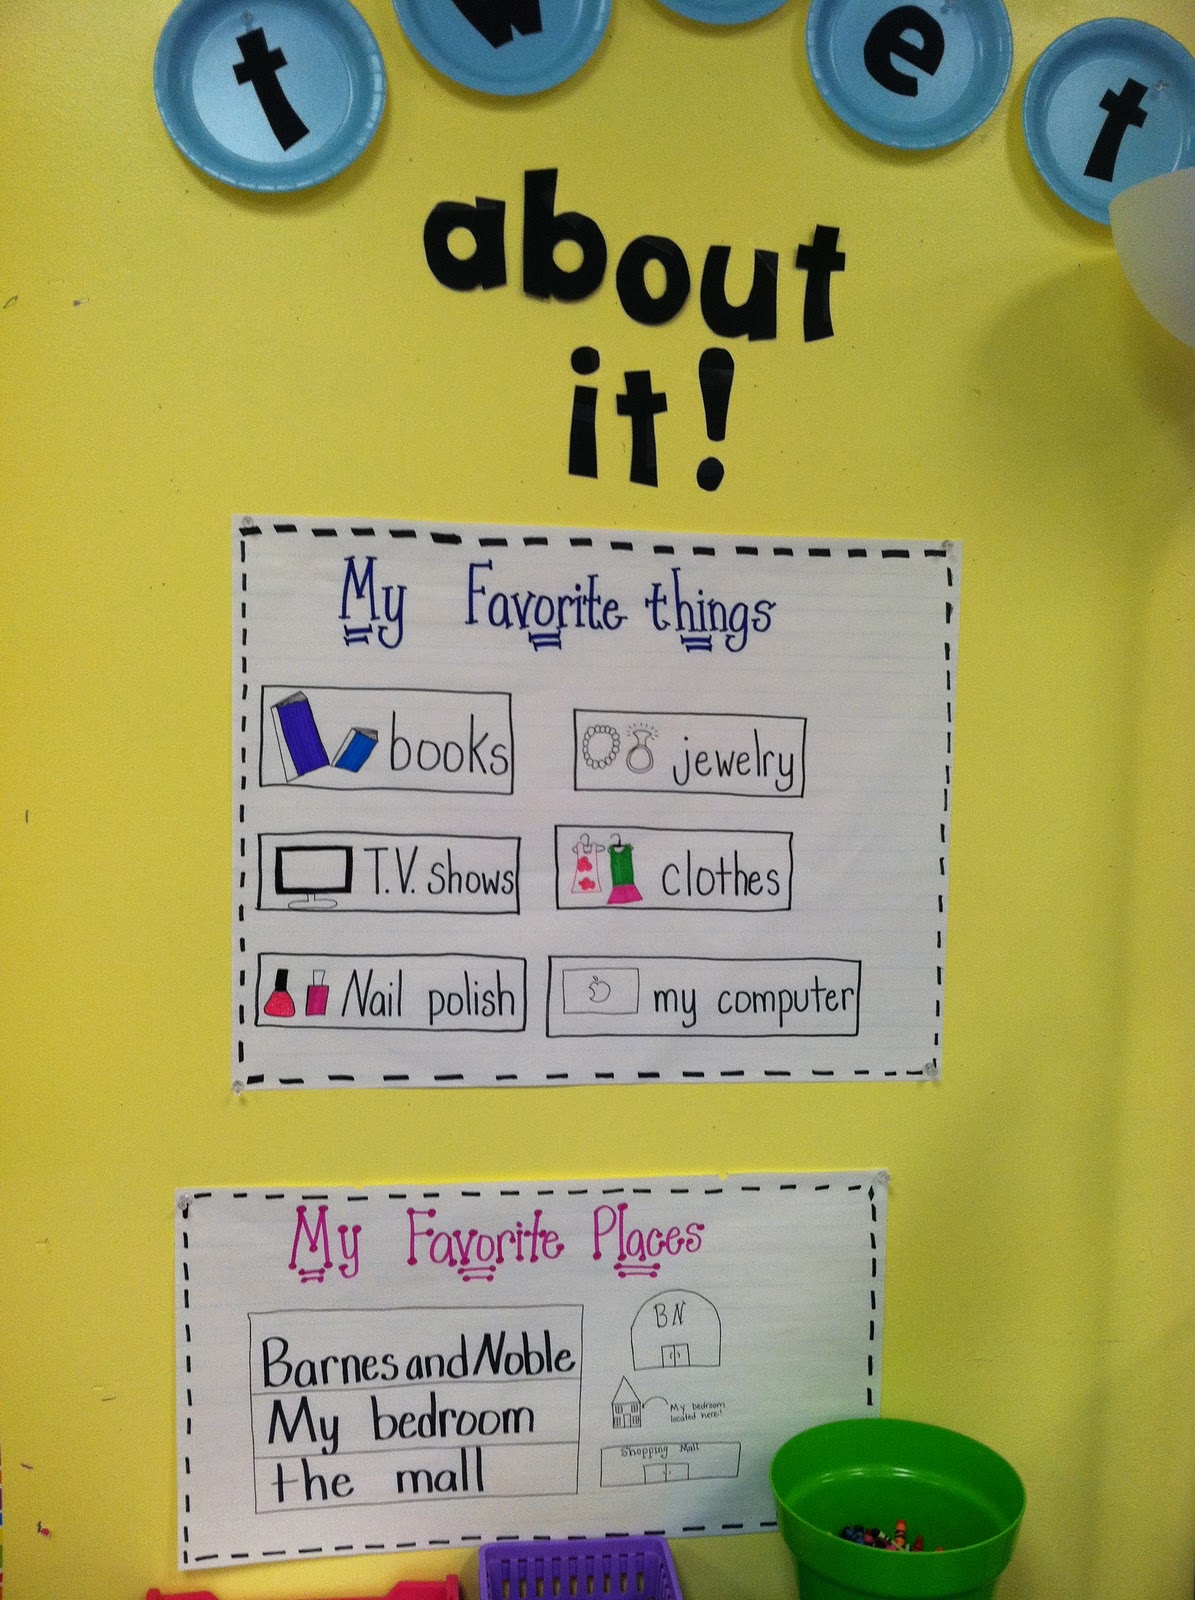 t w e t
about
it!
My Favorite things
books
jewelry
T.V. shows
clothes
Nail polish
my computer
My Favorite Places
Barnes and Noble
My bedroom
the mall
BN
My bedroom
located here!
Shopping Mall